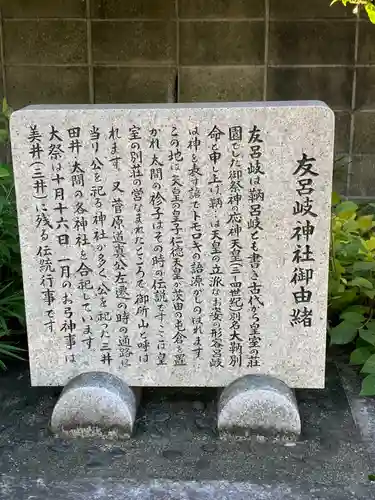 友呂岐神社御由緒
友呂岐は鞆呂岐とも書き古代から皇室の荘
園でした御祭神応神天皇(三‐四世紀)別名大鞆別
命と申し上げ鞆:は天皇の立派なお姿の形容呂岐
は神を表す語でトモロギの語源がしのばれます。
この地は天皇の皇子仁徳天皇が茨田の屯倉を置
かれ太間の衫子はその時の伝説です。ここは皇
室の別荘の営なまれたところで御所山と呼ば
れます。又菅原道真公左遷の時の通路に
当り公を祀る神社が多く、公を祀った三井
田井、太間の各神社を合祀しています。
大祭は十月十六日一月のお弓神事は
美井(三井)に残る伝統行事です。